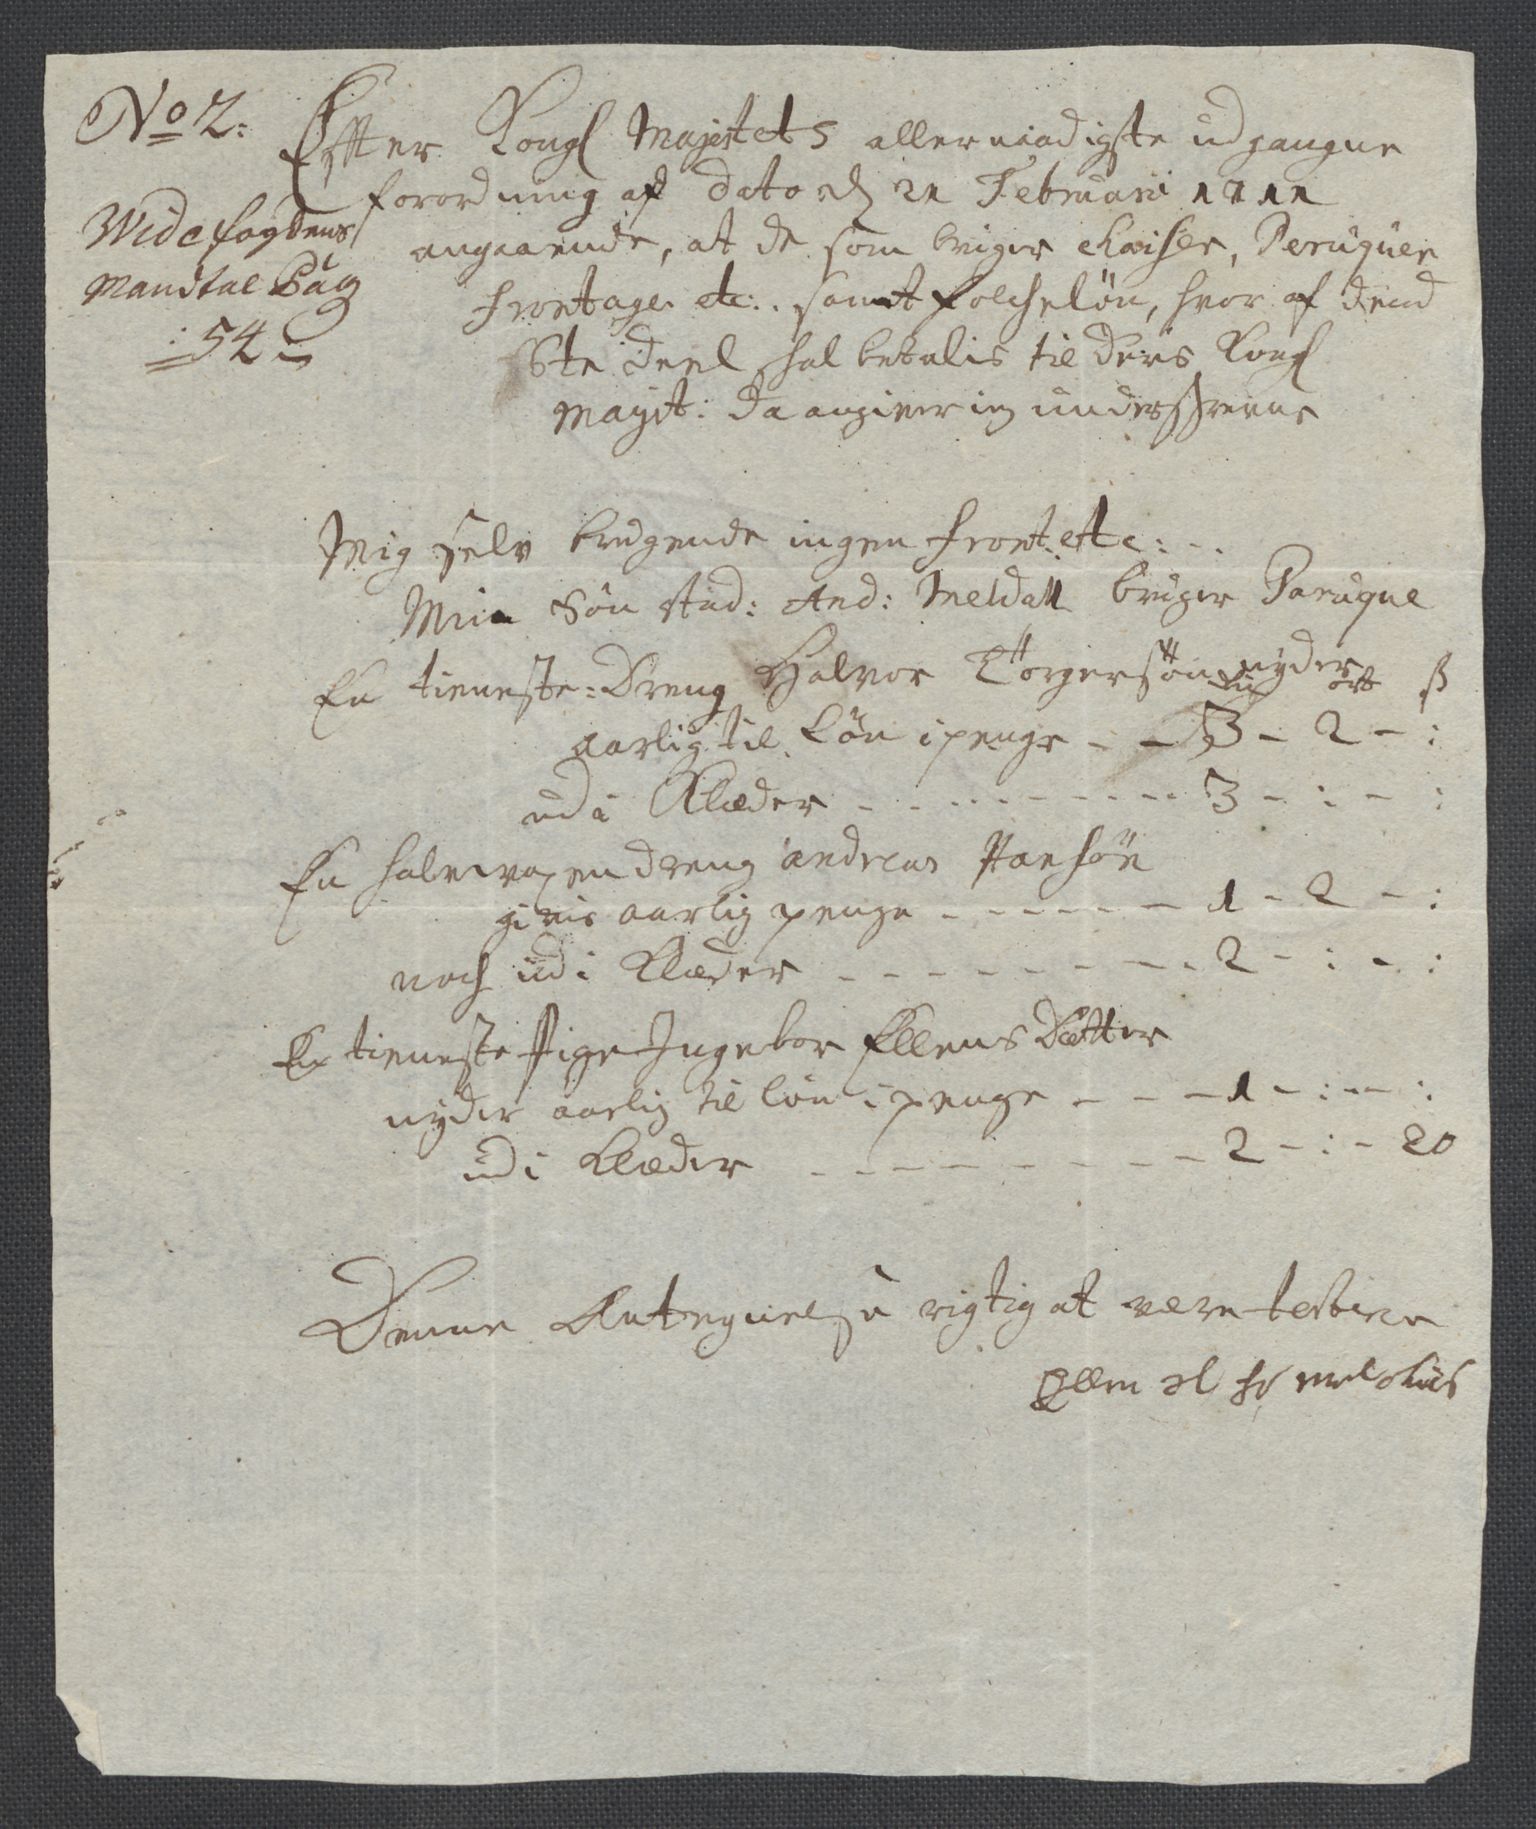 No 2:
Wide fogdens
Mandtal Pag
: 54
Effter Kongl Majestets allernaadigste udgangne
forordning af dato d 21 Februari 1711
angaaende, at de som bruger Chaiser, Peruquer
frontage etc: samt folcheløn, hvor af dend
6te deel skal betalis til Deris Kongl
Mayst: da angiver ieg underskrevne
Mig selv brugende ingen front. etc: -.
Min Søn stud: And: Meldall bruger Paruque
En tieneste-Dreng Halvor Törgersøn nyder
Rd ort ß
aarlig til Løn i penge - - 3 - 2 - :
udi Klæder - - - - 3 - : - :
En halvvoxen dreng andreas Hansøn
givis aarlig penge - - - - 1 - 2 - :
noch udi Klæder - - - - 2 - : - :
En tieneste Pige Ingebor Ellens Datter
nyder aarlig til løn i penge - - - 1 - : - :
udi Klæder - - - - 2 - : - 20
Denne Antegnelse rigtig at være testerer
Ellen sl hr